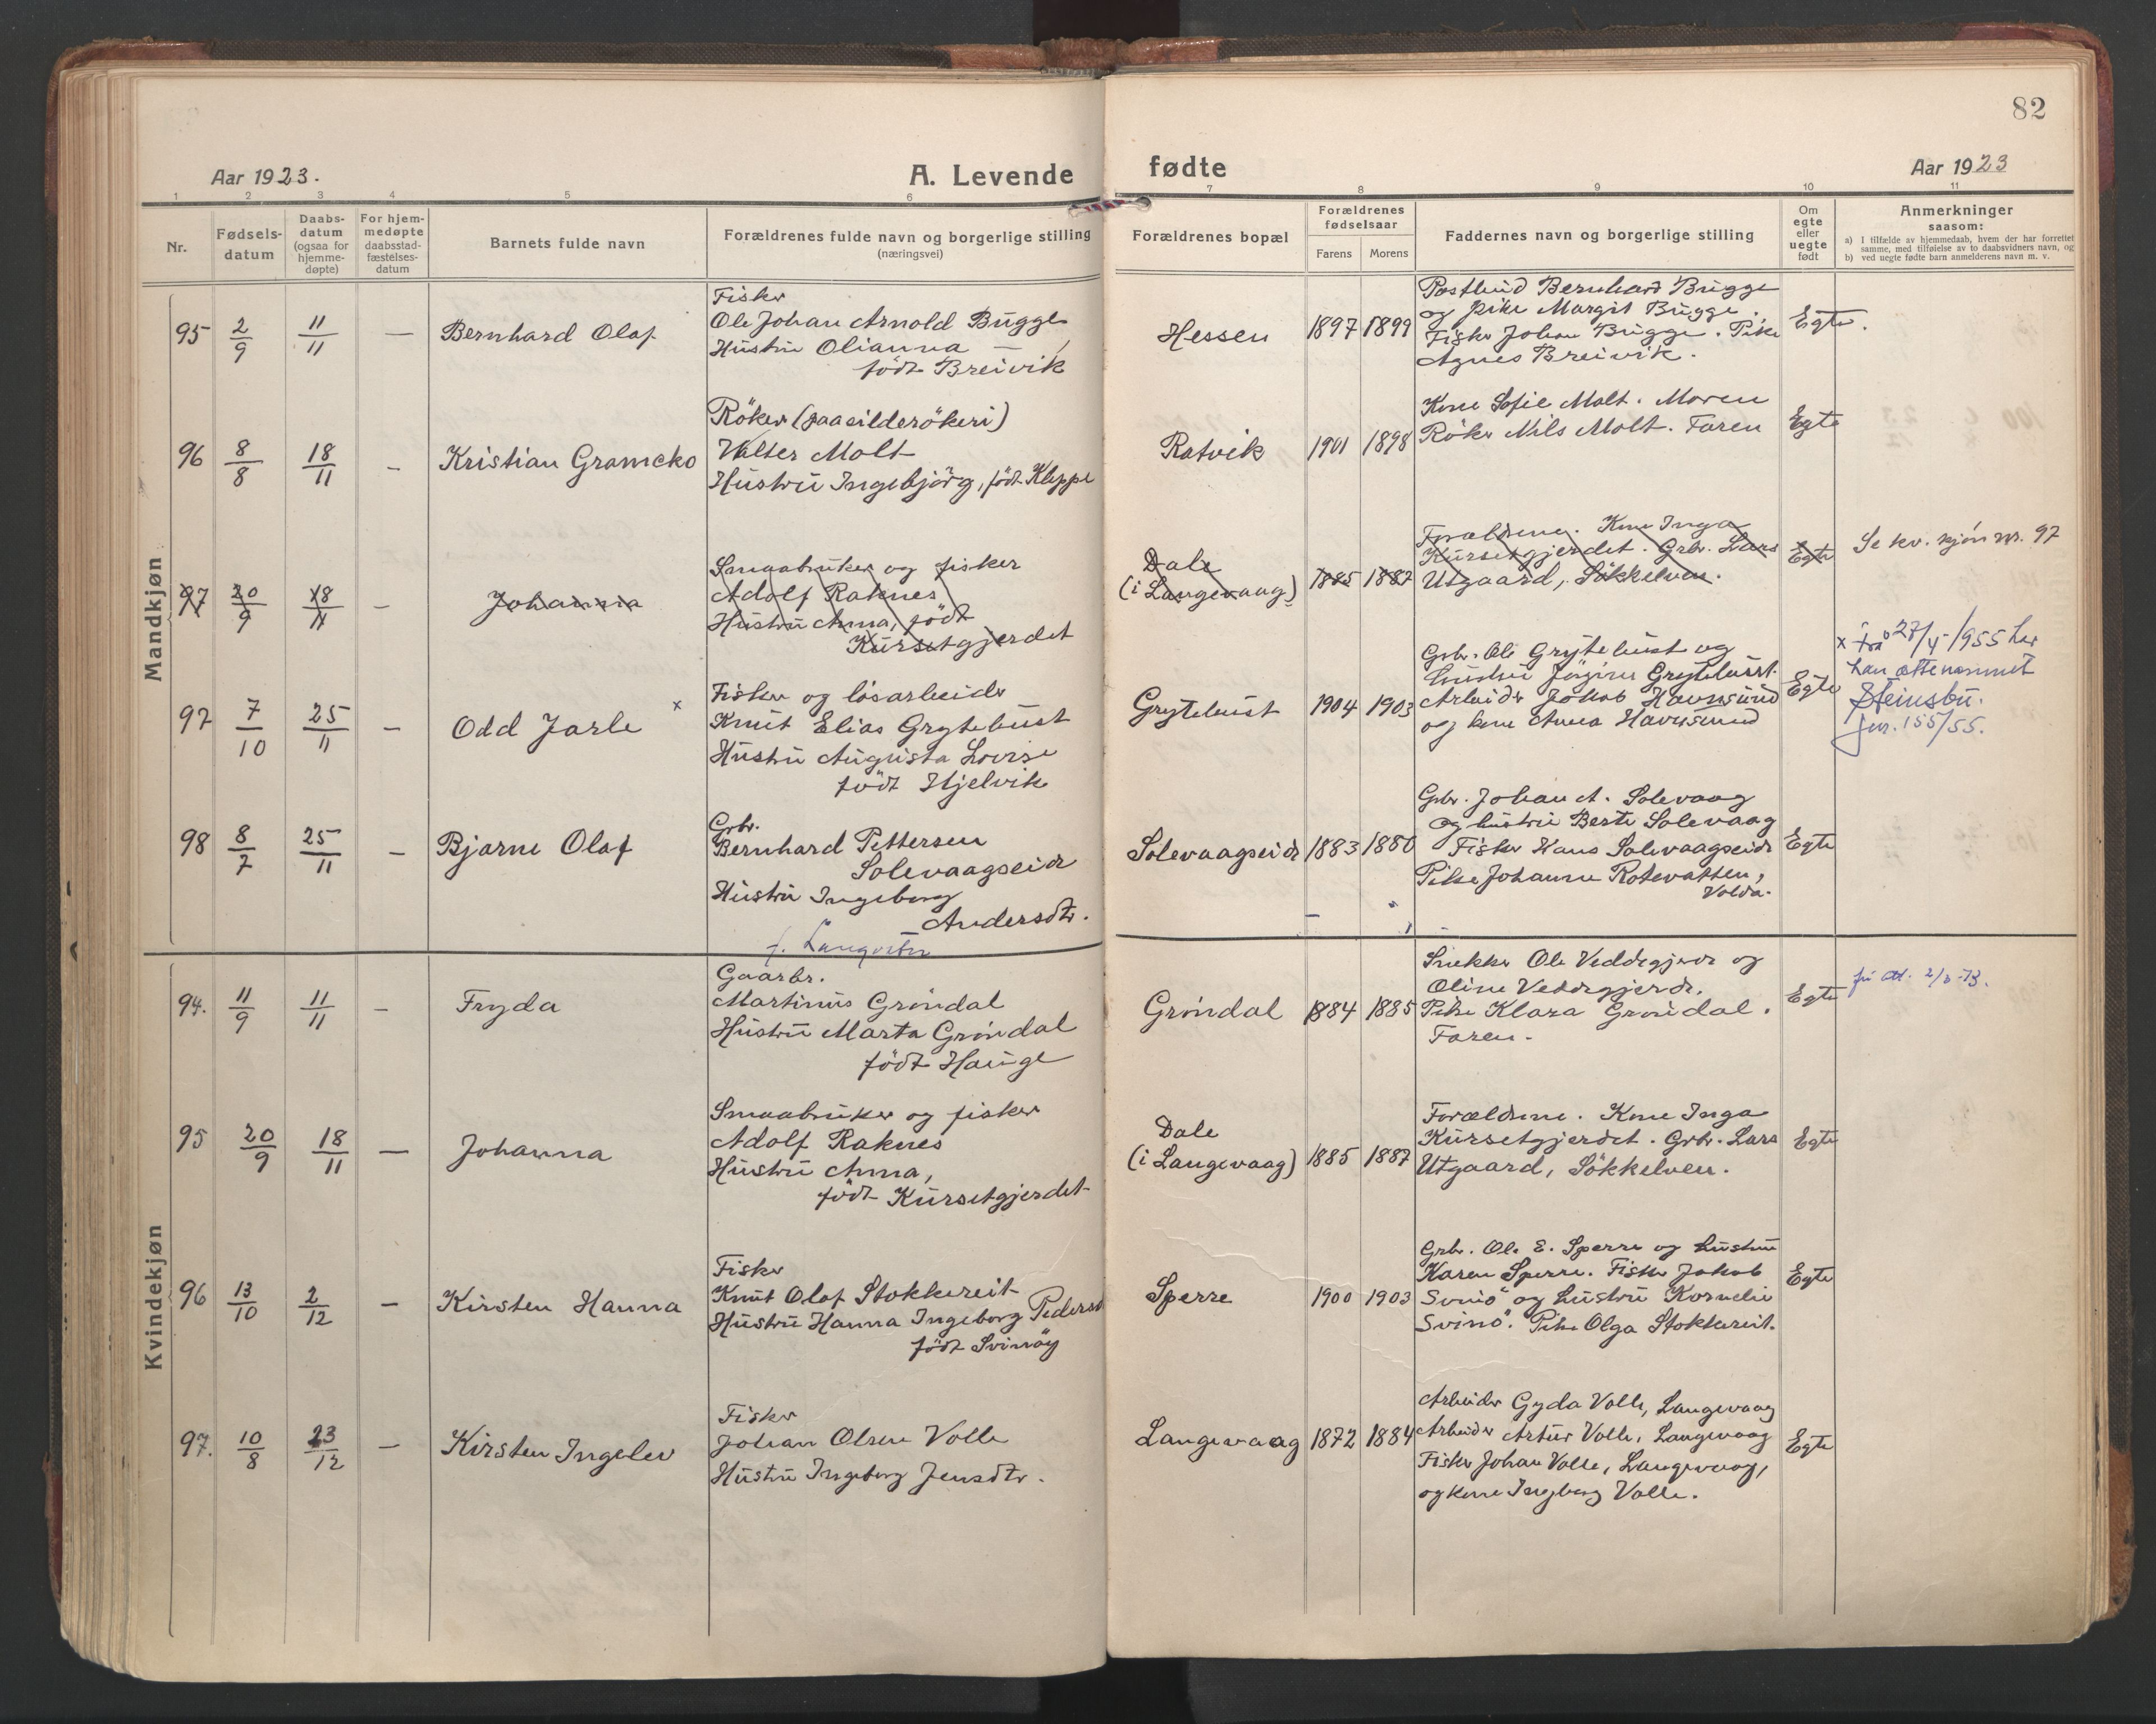 82
Aar 1923.
A. Levende
fødte
Aar 1923
1 2 3 4 5 6 7 8 9 10 11
Nr.
Fødsels-
datum
Daabs-
datum
(ogsaa for
hjemme-
døpte)
For hjem-
medøpte
daabsstad-
fæstelses-
datum
Barnets fulde navn
Forældrenes fulde navn og borgerlige stilling
(næringsvei)
Forældrenes bopæl
Forældrenes
fødselsaar
Farens Morens
Faddernes navn og borgerlige stilling
Om
egte
eller
uegte
født
Anmerkninger
saasom:
a) I tilfælde av hjemmedaab, hvem der har forrettet
samme, med tilføielse av to daabsvidners navn, og
b) ved uegte fødte barn anmelderens navn m. v.
Mandkjøn
95 2/9 11/11 — Bernhard Olaf
Fisker
Ole Johan Arnold Bugge
Hustru Olianna —
født Breivik
Hessen 1897 1899
Postbud Bernhard Bugge
og pike Margit Bugge.
Fisker Johan Bugge. Pike
Agnes Breivik.
Egte.
96 8/8 18/11 - Kristian Gramcko
Röker (paa silderökeri)
Walter Molt
Hustru Ingebjörg, född Kleppe
Ratvik 1901 1898
Kone Sofie Molt. Moren
Röker Nils Molt. Faren
Egte
97 20/9 18/11 - Johanna
Smaabruker og fisker
Adolf Raknes
Hustru Anna, född
Kursetgjerdet
Dale
(i Langevaag) 1885 1887
Forældrene. Kone Inga
Kursetgjerdet. Grbr. Lars
Utgaard, Sökkelven.
Egte
Se kv. kjön nr. 97
97 7/10 25/11 - Odd Jarle x
Fisker og lösarbeider
Knut Elias Grytehust
Hustru Augusta Lovise
född Hjelvik
Grytehust 1904 1903
Grbr. Ole Grytehust og
hustru Grytehust.
Arbeider Jakob Havnsund
og kone Anna Havnsund
Egte
x Frå 27/4-1955 har
han ættenamnet
Steinsbu.
jnr. 155/55.
98 8/7 25/11 - Bjarne Olaf
Grbr.
Bernhard Pettersen
Solevaagseide
Hustru Ingeborg
Andersdtr.
f. Langvatn
Solevaagseide 1883 1880
Grbr. Johan A. Solevaag
og hustru Berte Solevaag
Fisker Hans Solevaagseide
Pike Johanne Rotevatten,
Volda.
Egte
Kvindekjøn
94. 11/9 11/11 - Fryda
Gaarbr.
Martinus Gröndal
Hustru Marta Gröndal
född Hauge
Gröndal 1884 1885
Snekker Ole Veddegjerde og
Oline Veddegjerde.
Pike Klara Gröndal.
Faren.
Egte
95 20/9 18/11 — Johanna
Smaabruker og fisker
Adolf Raknes
Hustru Anna,
född Kursetgjerdet
Dale
(i Langevaag) 1885 1887
Forældrene. Kone Inga
Kursetgjerdet. Grbr. Lars
Utgaard, Sökkelven.
Egte
96 13/10 2/12 - Kirsten Hanna
Fisker
Knut Olaf Stokkereit
Hustru Hanna Ingeborg Pedersd
född Svinöy
Sperre 1900 1903
Grbr. Ole E. Sperre og hustru
Karen Sperre. Fisker Jakob
Svinö og hustru Kornelie
Svinö. Pike Olga Stokkereit.
Egte
97. 10/8 23/12 - Kirsten Ingelev
Fisker
Johan Olsen Volle
Hustru Ingeborg Jensdtr.
Langevaag 1872 1884
Arbeider Gyda Volle, Langevaag
Arbeider Artur Volle, Langevaag
Fisker Johan Volle, Langevaag,
og kone Ingeborg Volle.
Egte